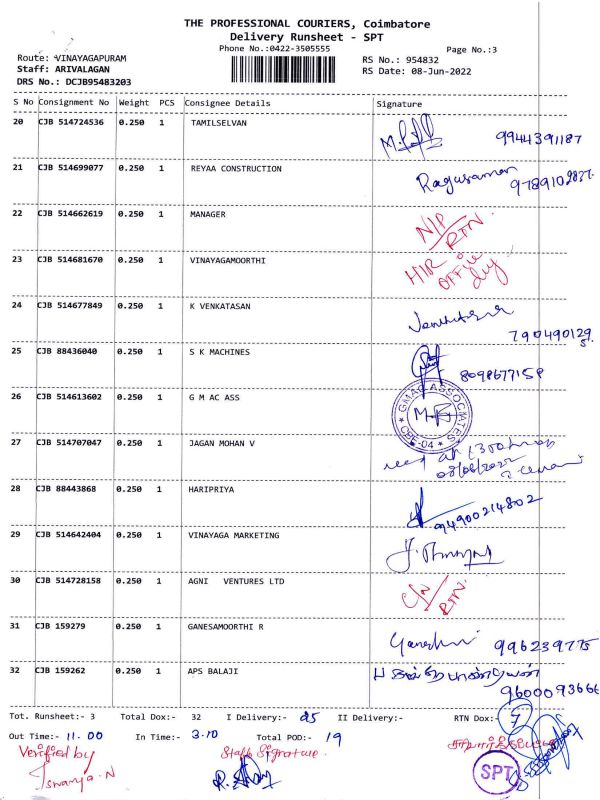 THE PROFESSIONAL COURIERS, Coimbatore
Delivery Runsheet - SPT
Phone No.:0422-3505555
Page No.:3
Route: VINAYAGAPURAM
RS No.: 954832
Staff: ARIVALAGAN
RS Date: 08-Jun-2022
DRS No.: DCJB95483203
S No Consignment No Weight PCS Consignee Details Signature
20 CJB 514724536 0.250 1 TAMILSELVAN 9944391187
21 CJB 514699077 0.250 1 REYAA CONSTRUCTION
22 CJB 514662619 0.250 1 MANAGER N/P RTN.
23 CJB 514681670 0.250 1 VINAYAGAMOORTHI OFFICE
24 CJB 514677849 0.250 1 K VENKATASAN
25 CJB 88436040 0.250 1 S K MACHINES
26 CJB 514613602 0.250 1 G M AC ASS GMAC ASSOCIATES CBE-04
27 CJB 514707047 0.250 1 JAGAN MOHAN V
08/06/2022
28 CJB 88443868 0.250 1 HARIPRIYA 94900214802
29 CJB 514642404 0.250 1 VINAYAGA MARKETING
30 CJB 514728158 0.250 1 AGNI VENTURES LTD RTN.
31 CJB 159279 0.250 1 GANESAMOORTHI R 996239775
32 CJB 159262 0.250 1 APS BALAJI
9600093666
Tot. Runsheet:- 3 Total Dox:- 32 I Delivery:- 25 II Delivery:- RTN Dox:- 7
Out Time:- 11.00 In Time:- 3.10 Total POD:- 19
Verified by Staff Signature.
SPT